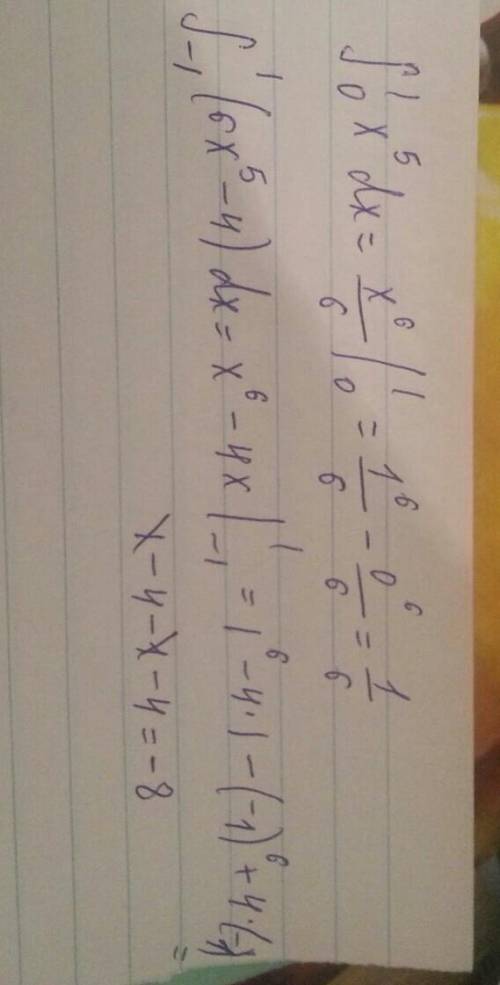 ∫₀¹ x⁵ dx = x⁶/6 |₀¹ = 1⁶/6 - 0⁶/6 = 1/6
∫₋₁¹ (6x⁵ - 4) dx = x⁶ - 4x |₋₁¹ = 1⁶ - 4·1 - (-1)⁶ + 4·(-1) =
1 - 4 - 1 - 4 = -8